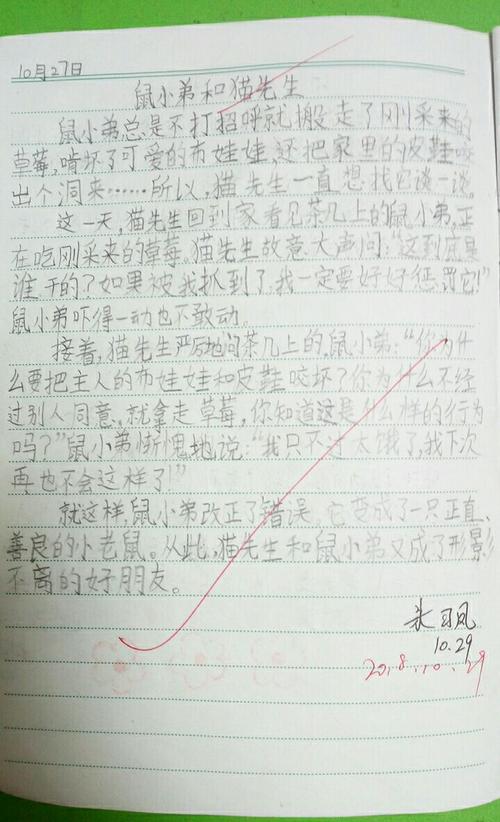 10月27日
鼠小弟和猫先生
鼠小弟总是不打招呼就搬走了刚采来的
草莓,啃坏了可爱的布娃娃,还把家里的皮鞋咬
出个洞来……所以,猫先生一直想找它谈一谈。
这一天,猫先生回到家看见茶几上的鼠小弟,正
在吃刚采来的草莓。猫先生故意大声问:“这到底是
谁干的?如果被我抓到了,我一定要好好惩罚它!”
鼠小弟吓得一动也不敢动。
接着,猫先生严厉地问茶几上的鼠小弟:“你为什
么要把主人的布娃娃和皮鞋咬坏?你为什么不经
过别人同意,就拿走草莓,你知道这是什么样的行为
吗?”鼠小弟惭愧地说:“我只不过太饿了,我下次
再也不会这样了!”
就这样,鼠小弟改正了错误。它变成了一只正直、
善良的小老鼠。从此,猫先生和鼠小弟又成了形影
不离的好朋友。
10.29
2018.10.29